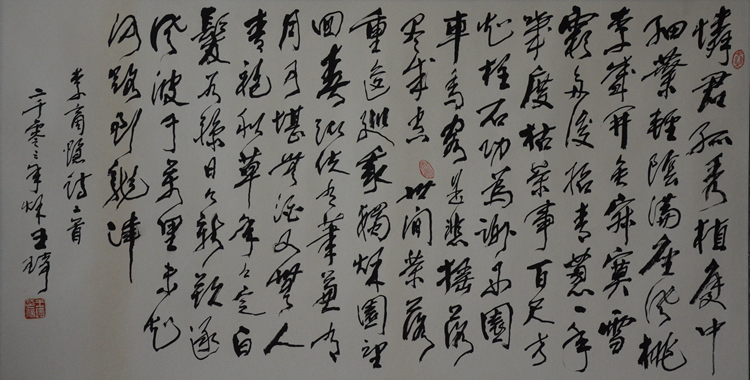 憐君孤秀植庭中
細葉輕陰滿座風桃
李盛時雖寂寞雪
霜多後始青蔥一年
幾度枯榮事百尺方
知柱石功為謝西園
車馬客定悲搖落
盡成空 世間榮落
重逡巡我獨秋園望
四春縱使有華兼有
月可堪無酒又無人
青袍似草年年定白
髮如絲日日新欲逐
風波千萬里未知
何路到龍津
李商隱詩二首
二千零三年秋 王琦